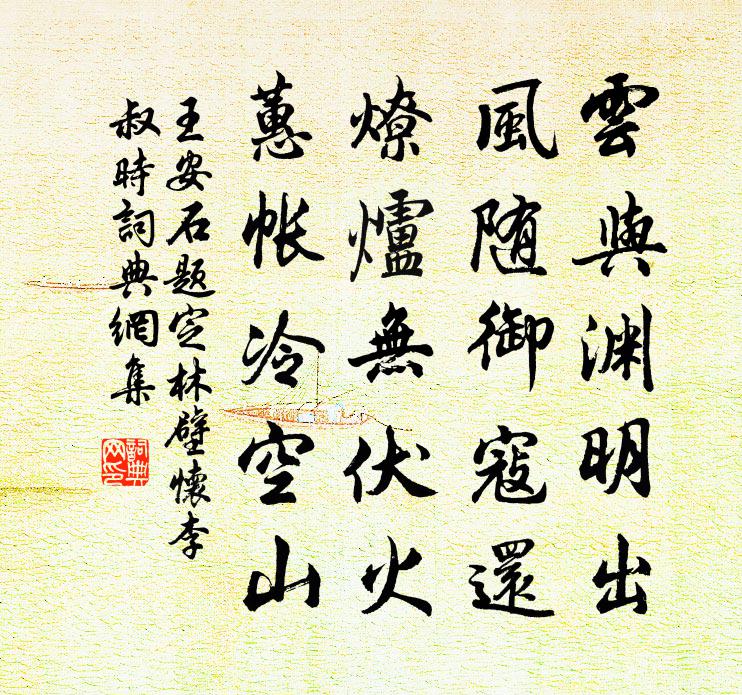 雲與渊明出
風随御寇還
燎爐無伏火
蕙帳冷空山
王安石题定林壁懷李
叔時詞典網集
詞典
网印